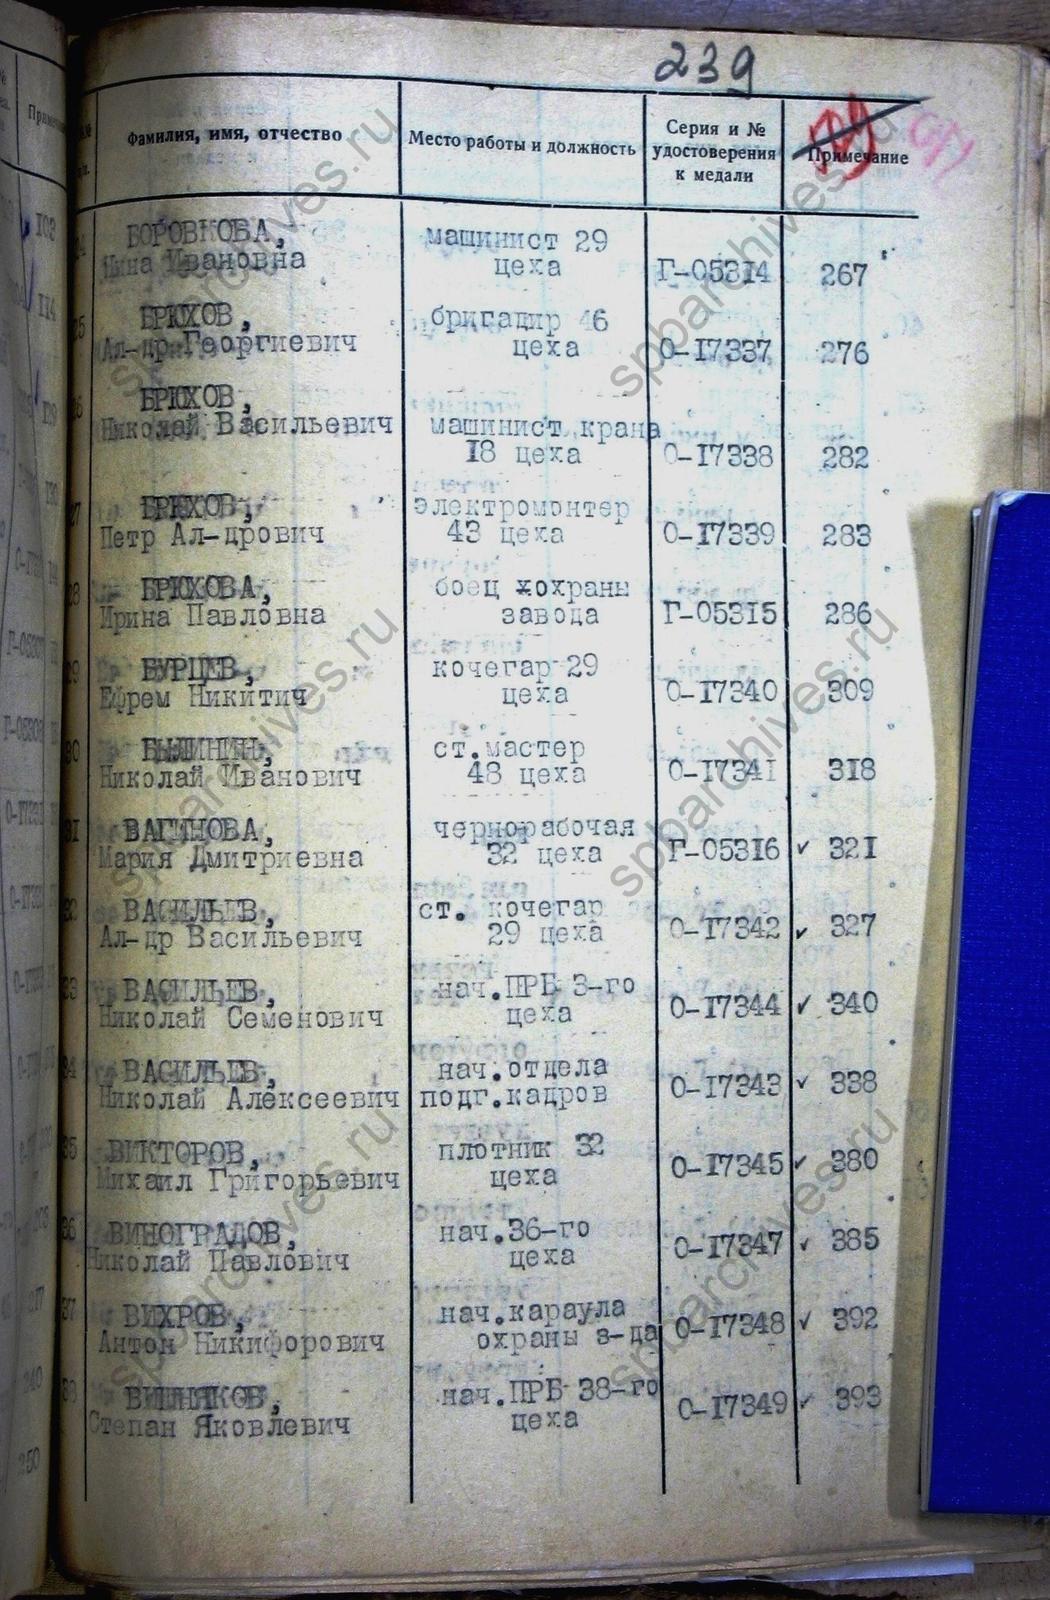 239
Фамилия, имя, отчество
Место работы и должность
Серия и №
удостоверения
к медали
Примечание
БОРОВКОВА, машинист 29
Нина Ивановна цеха Г-05314 267
БРЮХОВ, бригадир 46
Ал-др Георгиевич цеха О-17337 276
БРЮХОВ,
Николай Васильевич машинист крана
18 цеха О-17338 282
БРЮХОВ, электромонтер
Петр Ал-дрович 43 цеха О-17339 283
БРЮХОВА, боец хохраны
Ирина Павловна завода Г-05315 286
БУРЦЕВ, кочегар 29
Ефрем Никитич цеха О-17340 309
БЫЛИНИН, ст.мастер
Николай Иванович 48 цеха О-17341 318
ВАГИНОВА, чернорабочая
Мария Дмитриевна 32 цеха Г-05316 ✓ 321
ВАСИЛЬЕВ, ст. кочегар
Ал-др Васильевич 29 цеха О-17342 ✓ 327
ВАСИЛЬЕВ, нач.ПРБ 3-го
Николай Семенович цеха О-17344 ✓ 340
ВАСИЛЬЕВ, нач.отдела
Николай Алексеевич подг.кадров О-17343 ✓ 338
ВИКТОРОВ, плотник 32
Михаил Григорьевич цеха О-17345 ✓ 380
ВИНОГРАДОВ, нач.36-го
Николай Павлович цеха О-17347 ✓ 385
ВИХРОВ, нач.караула
Антон Никифорович охраны з-да О-17348 ✓ 392
ВИШНЯКОВ, нач.ПРБ 38-го
Степан Яковлевич цеха О-17349 ✓ 393
spbarchives.ru